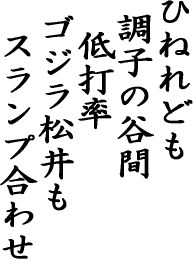 ひねれども
調子の谷間
低打率
ゴジラ松井も
スランプ合わせ